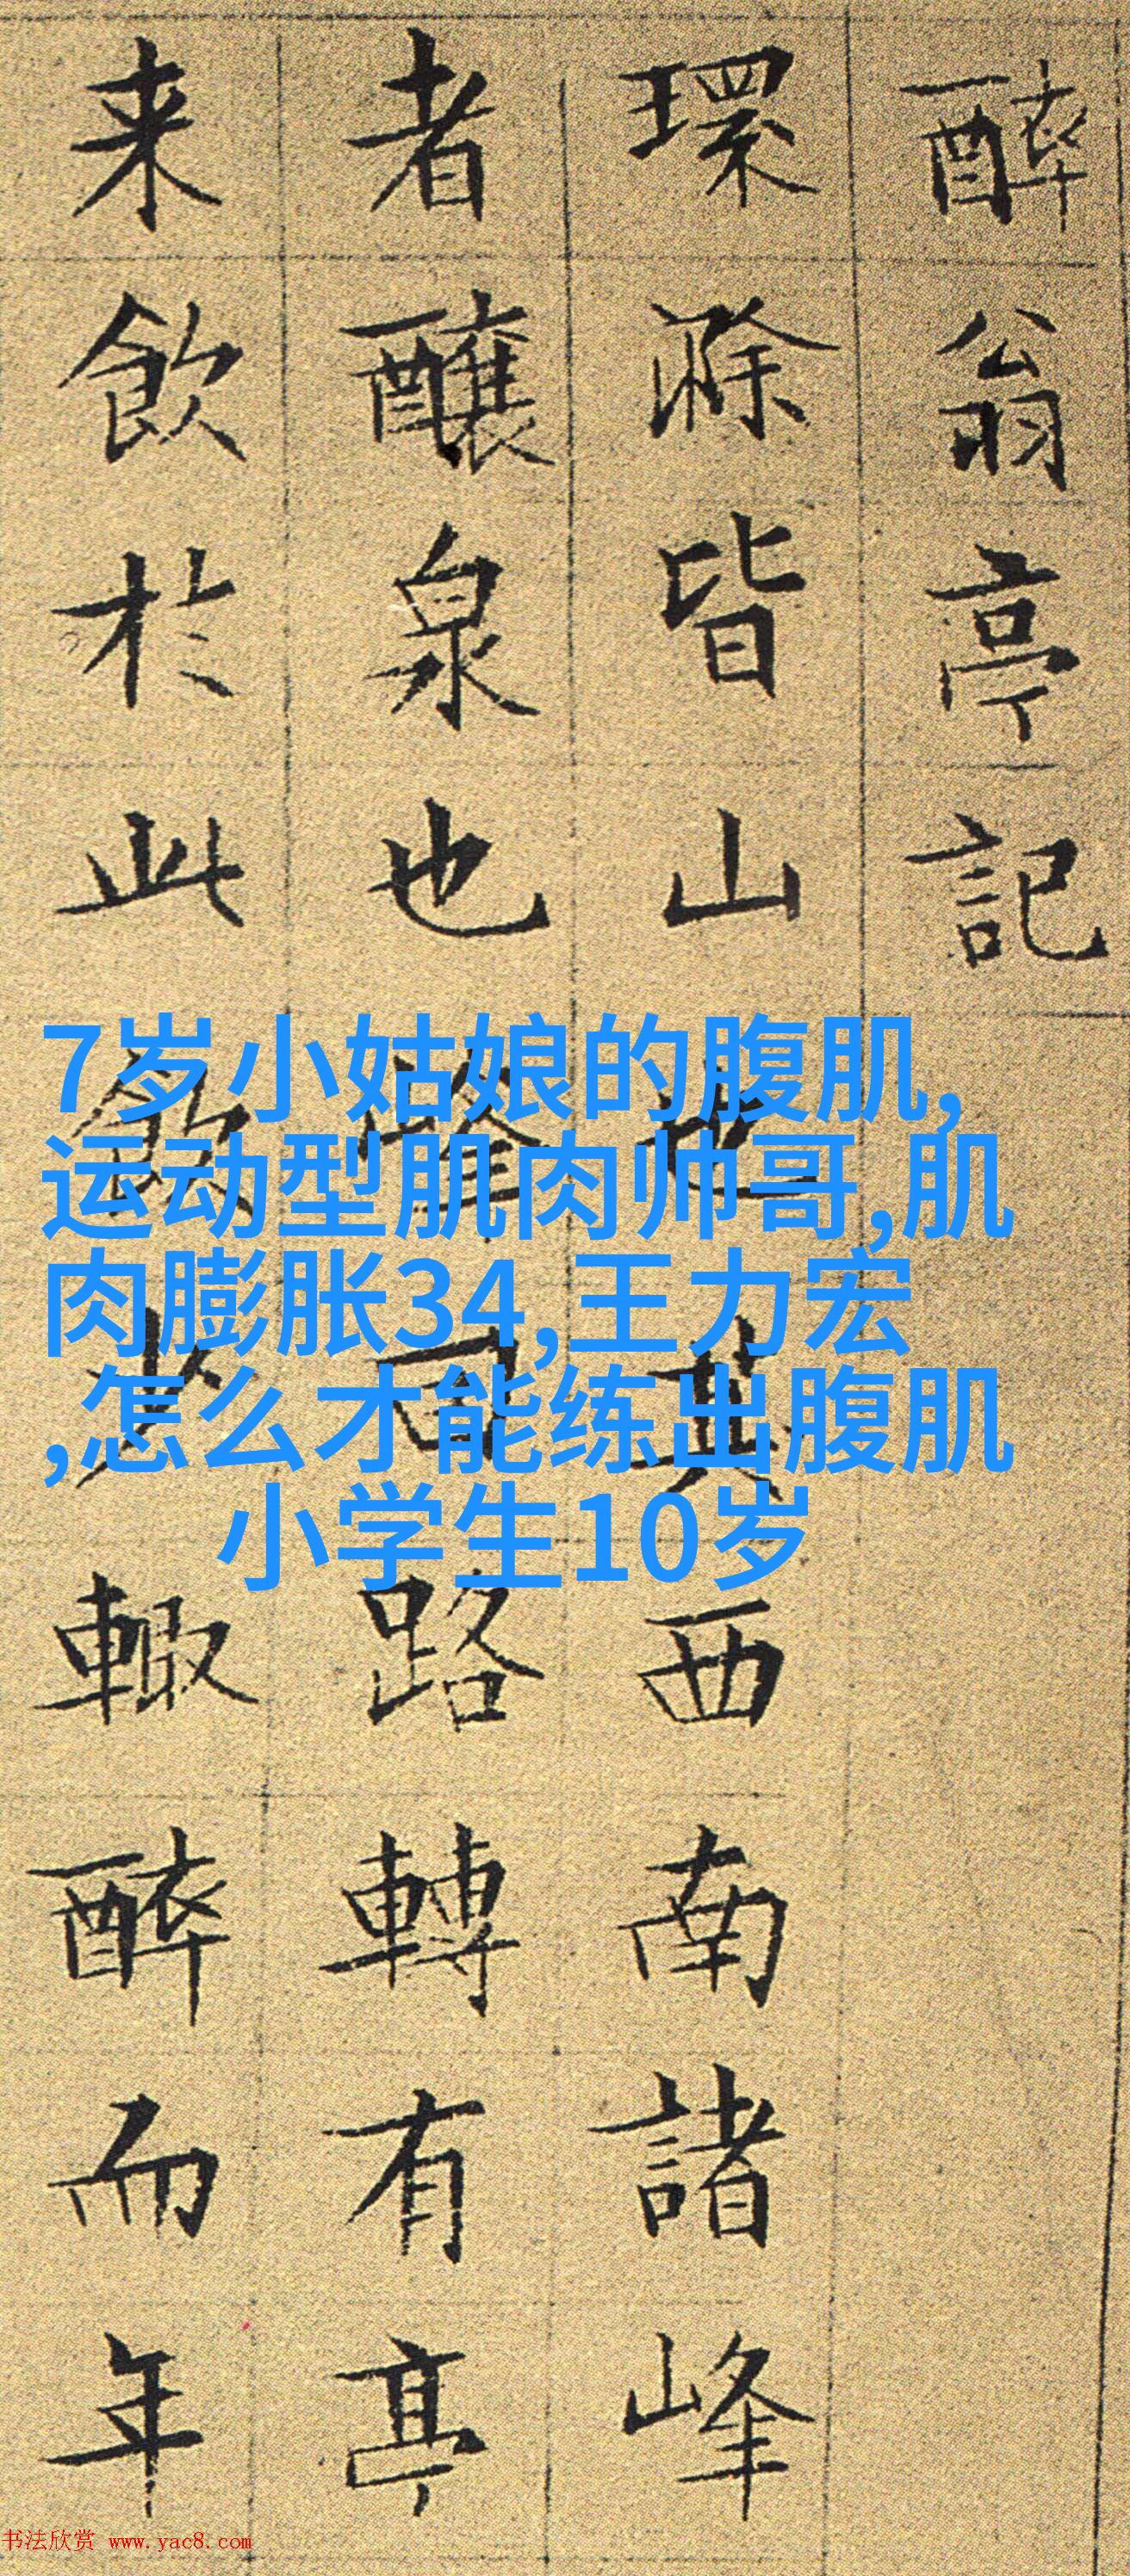 醉翁亭記
環滁皆山也其西南諸峰
者釀泉也峯回路轉有亭
来飲於此飲少輒醉而年
7岁小姑娘的腹肌,
运动型肌肉帅哥,肌
肉膨胀34,王力宏
,怎么才能练出腹肌
小学生10岁
书法欣赏 www.yac8.com